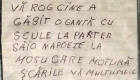 VĂ ROG CINE A
GĂSIT O GANTĂ CU
SCULE LA PARTER
SĂ O NAPOEZE LA
MOȘU CARE MĂTURĂ
SCĂRILE VĂ MULȚUMESC